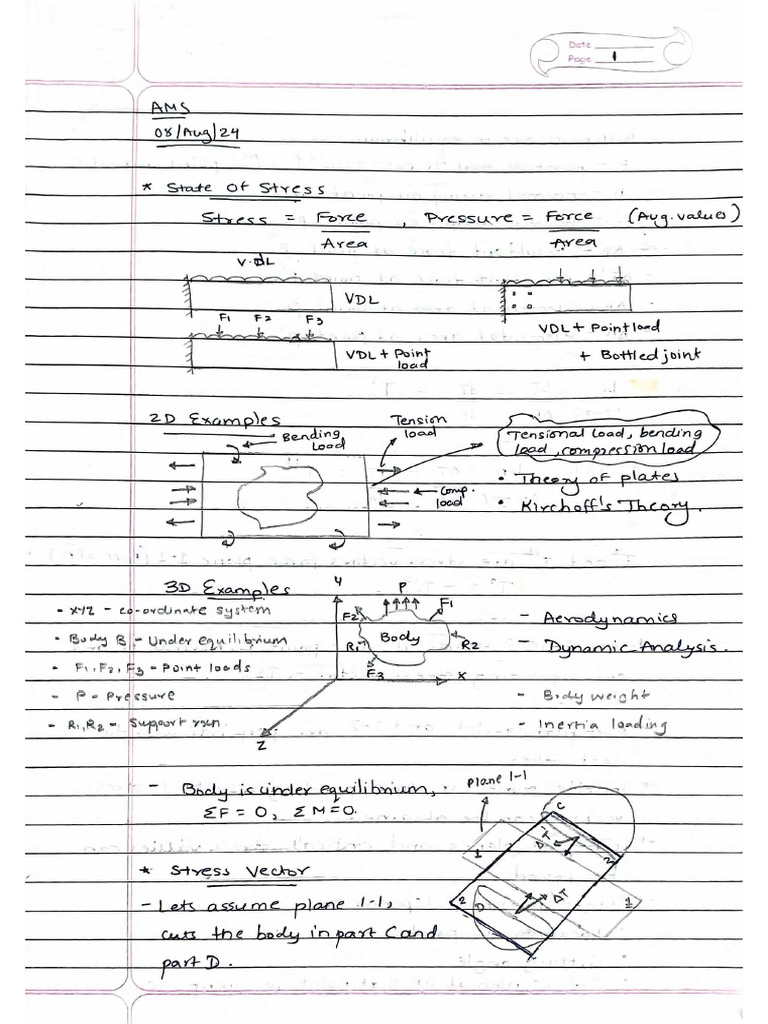 Date
Page 1
AMS
08/Aug/24
* State of Stress
Stress = Force / Area , Pressure = Force / Area (Avg. values)
V.dL
VDL
F1 F2 F3
VDL + Point load
VDL + Point load
+ Bottled joint
2D Examples
Bending Load
Tension load
Comp. load
Tensional load, bending
load, compression load
• Theory of plates
• Kirchoff's Theory.
3D Examples
- XYZ - co-ordinate system
- Body B - Under equilibrium
- F1, F2, F3 - Point loads
- P = Pressure
- R1, R2 - Support rxn.
Y
P
F2
F1
Body
R1
R2
F3
X
Z
- Aerodynamics
- Dynamic Analysis.
- Body weight
- Inertia loading
- Body is under equilibrium,
ΣF = 0, ΣM = 0.
* Stress Vector
- Lets assume plane 1-1,
cuts the body in part C and
part D.
Plane 1-1
C
1
ΔT
2
2
D
ΔT
1